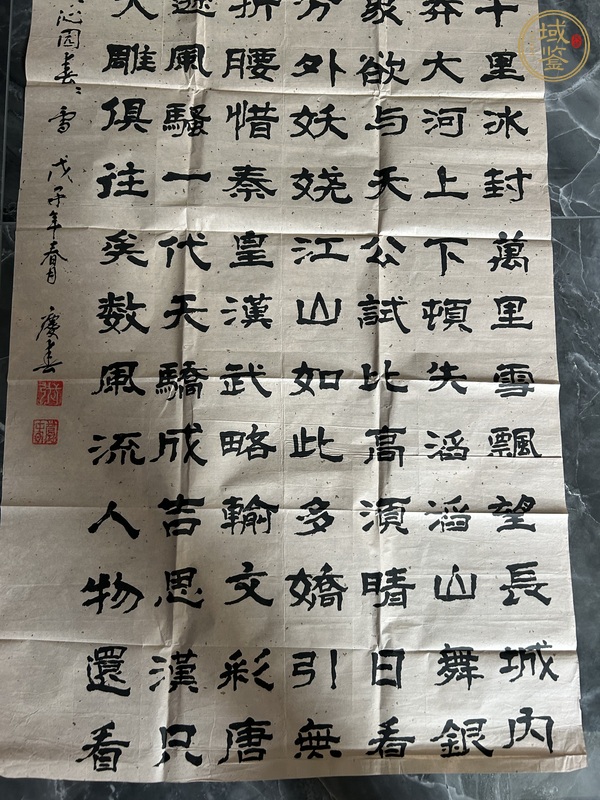 里冰封萬里雪飄望長城内
莽大河上下頓失滔滔山舞銀
象欲与天公試比高須晴日看
分外妖娆江山如此多嬌引無
折腰惜秦皇漢武略輸文彩唐
遜風騷一代天驕成吉思漢只
大雕俱往矣数風流人物還看
沁园春 雪 戊子年春月 慶春
域鉴